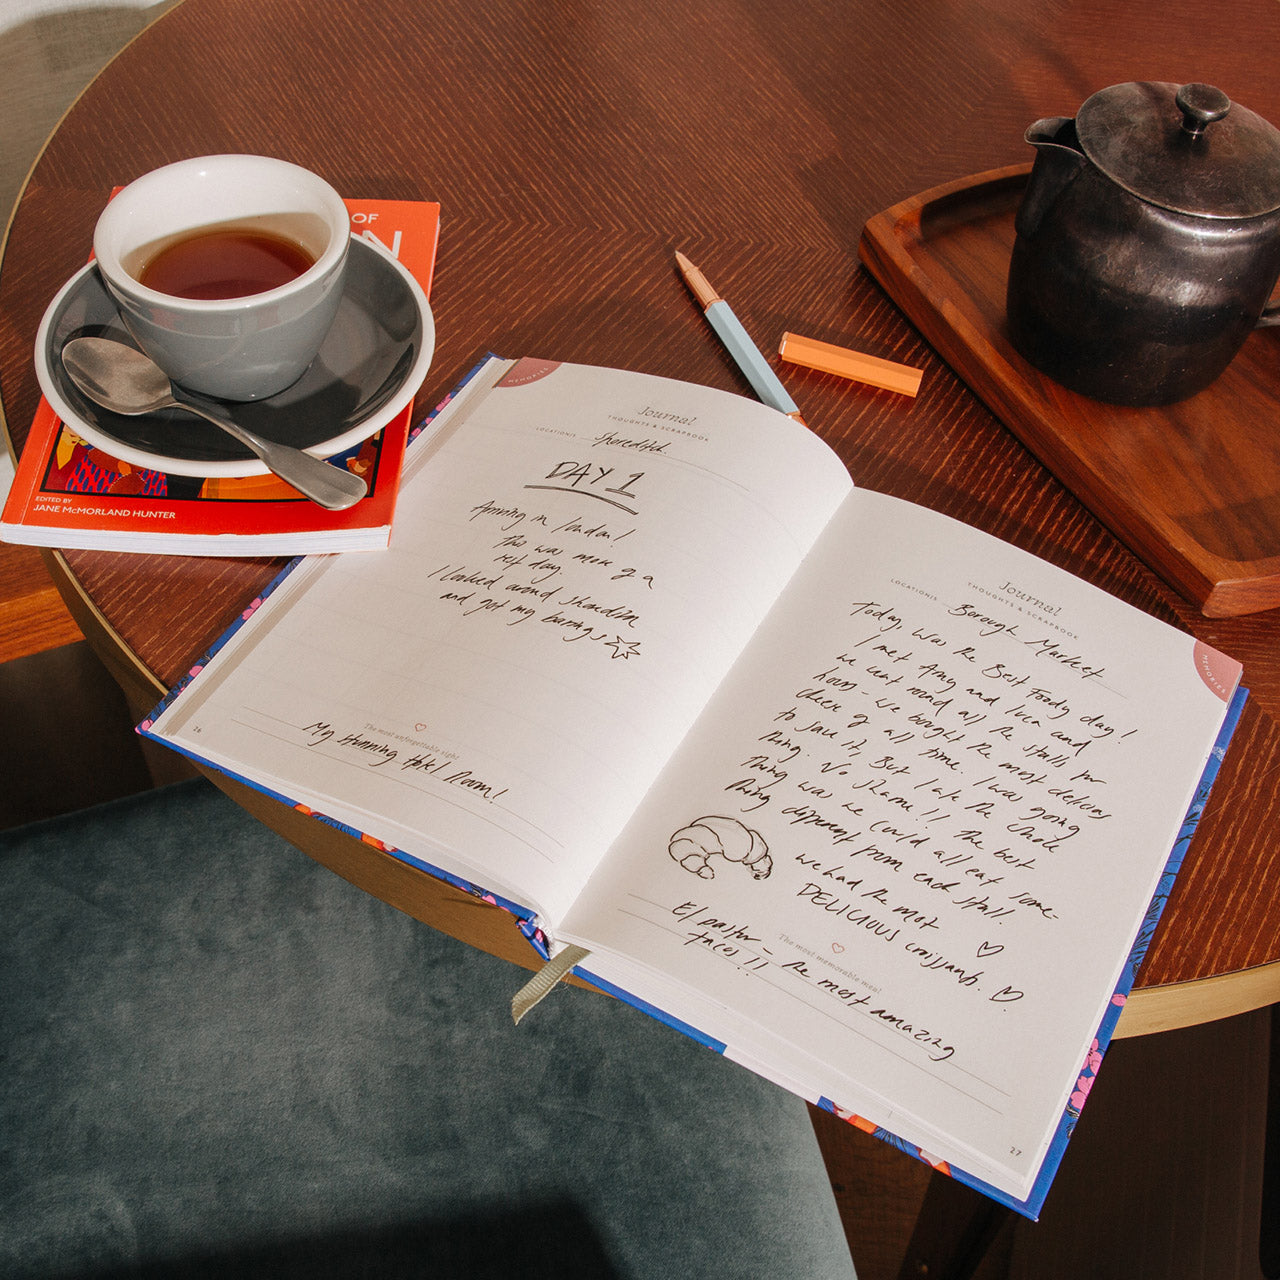 OF
N
EDITED BY
JANE McMORLAND HUNTER
MEMORIES
Journal
THOUGHTS & SCRAPBOOK
LOCATION/S Shoreditch.
DAY 1
Arriving in London!
This was more of a
rest day
I looked around Shoreditch
and got my bearings
The most unforgettable sight
My stunning Hotel Room!
26
MEMORIES
Journal
THOUGHTS & SCRAPBOOK
LOCATION/S Borough Market
Today was the Best Foody day!
I met Amy and Luca and
we went round all the stalls for
hours - we bought the most delicious
cheese of all time. I was going
to save it, But I ate the whole
thing. No shame!! The best
thing was we could all eat some-
thing different from each stall!
we had the most
DELICIOUS croissants.
The most memorable meal
El pastor - the most amazing
tacos!!
27